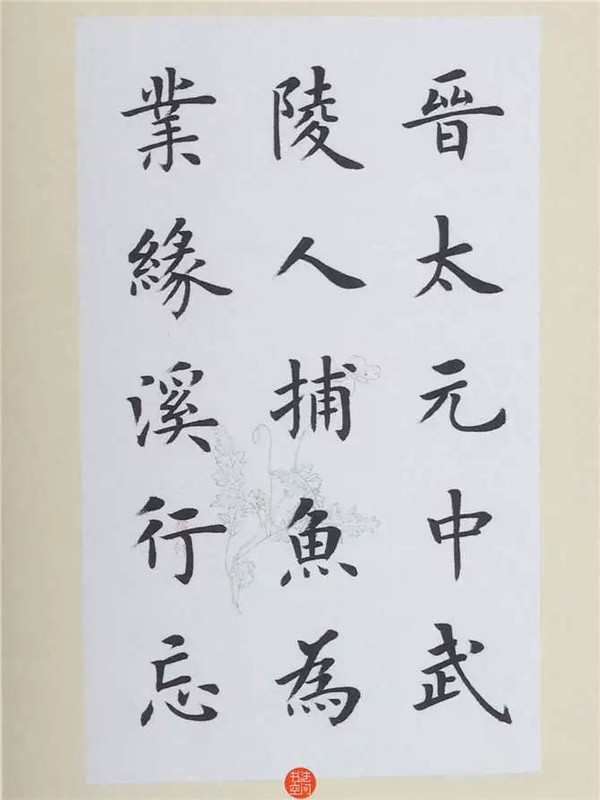 晉太元中武
陵人捕魚為
業緣溪行忘
书法
空间